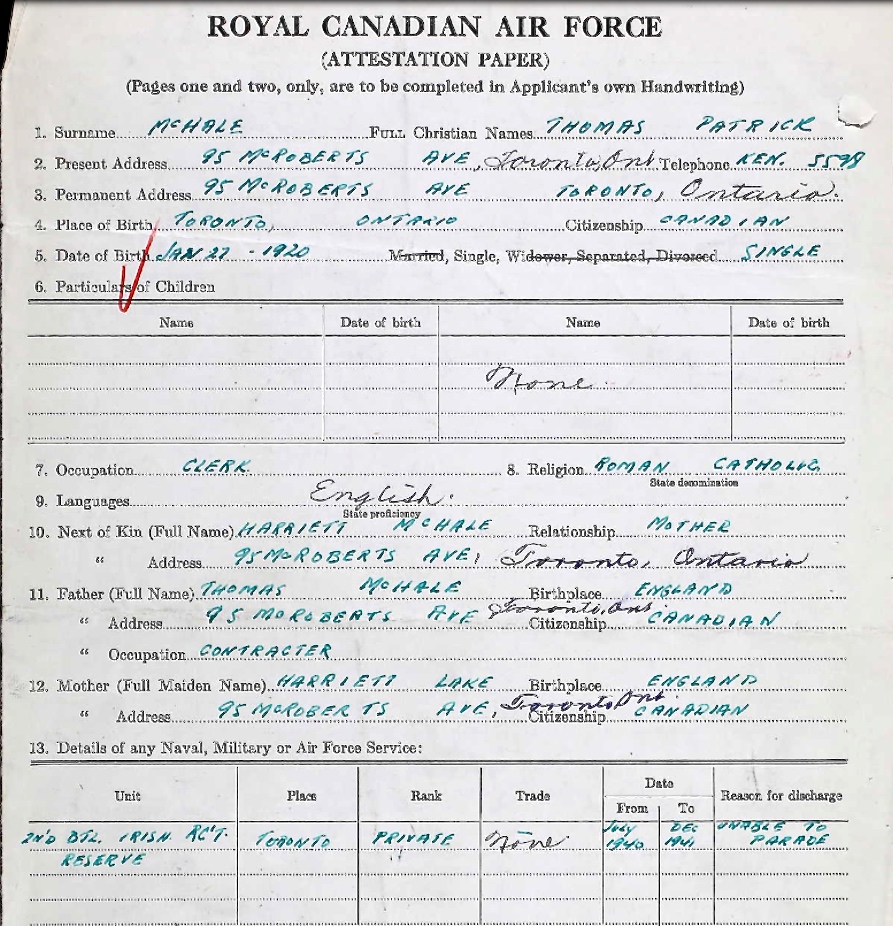 ROYAL CANADIAN AIR FORCE
(ATTESTATION PAPER)
(Pages one and two, only, are to be completed in Applicant's own Handwriting)
1. Surname McHALE FULL Christian Names THOMAS PATRICK
2. Present Address 95 McROBERTS AVE, Toronto, Ont Telephone KEN. 5598
3. Permanent Address 95 McROBERTS AVE TORONTO, Ontario.
4. Place of Birth TORONTO, ONTARIO Citizenship CANADIAN
5. Date of Birth JAN 27 - 1920 Married, Single, Widower, Separated, Divorced SINGLE
6. Particulars of Children
Name Date of birth Name Date of birth
None.
7. Occupation CLERK 8. Religion ROMAN CATHOLIC
State denomination
9. Languages English.
State proficiency
10. Next of Kin (Full Name) HARRIETT McHALE Relationship MOTHER
" Address 95 McROBERTS AVE, Toronto, Ontario
11. Father (Full Name) THOMAS McHALE Birthplace ENGLAND
" Address 95 McROBERTS AVE Toronto, Ont. Citizenship CANADIAN
" Occupation CONTRACTER
12. Mother (Full Maiden Name) HARRIETT LAKE Birthplace ENGLAND
" Address 95 McROBERTS AVE, Toronto Ont. Citizenship CANADIAN
13. Details of any Naval, Military or Air Force Service:
Unit Place Rank Trade Date Reason for discharge
From To
2N'D BTL. IRISH. RC'T. TORONTO PRIVATE None JULY DEC UNABLE TO
RESERVE 1940 1941 PARADE